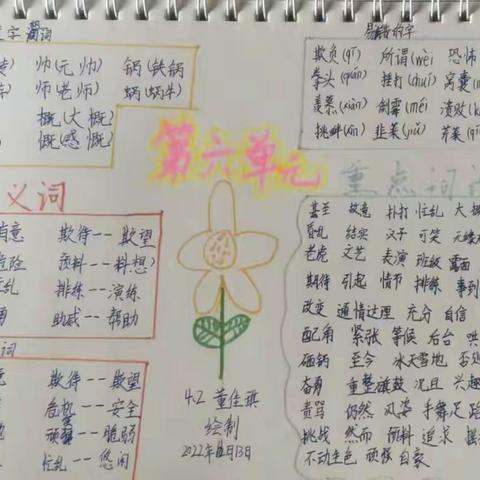 字组词
帅(元帅) 锅(铁锅
师(老师) 蜗(蜗牛)
概(大概)
慨(感慨)
易错的字
欺负(qī) 所谓(wèi) 恐怖
拳头(quán) 捶打(chuí) 窝囊
羡慕(xiàn) 倒霉(méi) 溃败(k
挑衅(xìn) 韭菜(jiǔ) 荠菜(
第六单元
义词
期待--期望
危险 预料--料想
排练--演练
助威--帮助
词
期待--期望
危机--安全
顽强--脆弱
忙乱--悠闲
4.2 董佳琪
绘制
2022年12月13日
重点词语
甚至 故意 扑打 忙乱 大概
昏乱 结实 义子 可笑 无缘
老虎 文艺 表演 班级 露面
期待 引起 情节 排练 事到
改变 通情达理 充分 自信
配角 紧张 等候 后台 哄
砸锅 至今 冰天雪地 否则
奋勇 重整旗鼓 况且 兴趣
责骂 仍然 风姿 手舞足蹈
挑战 然而 预料 追求 摆
不动生色 顽强 自豪